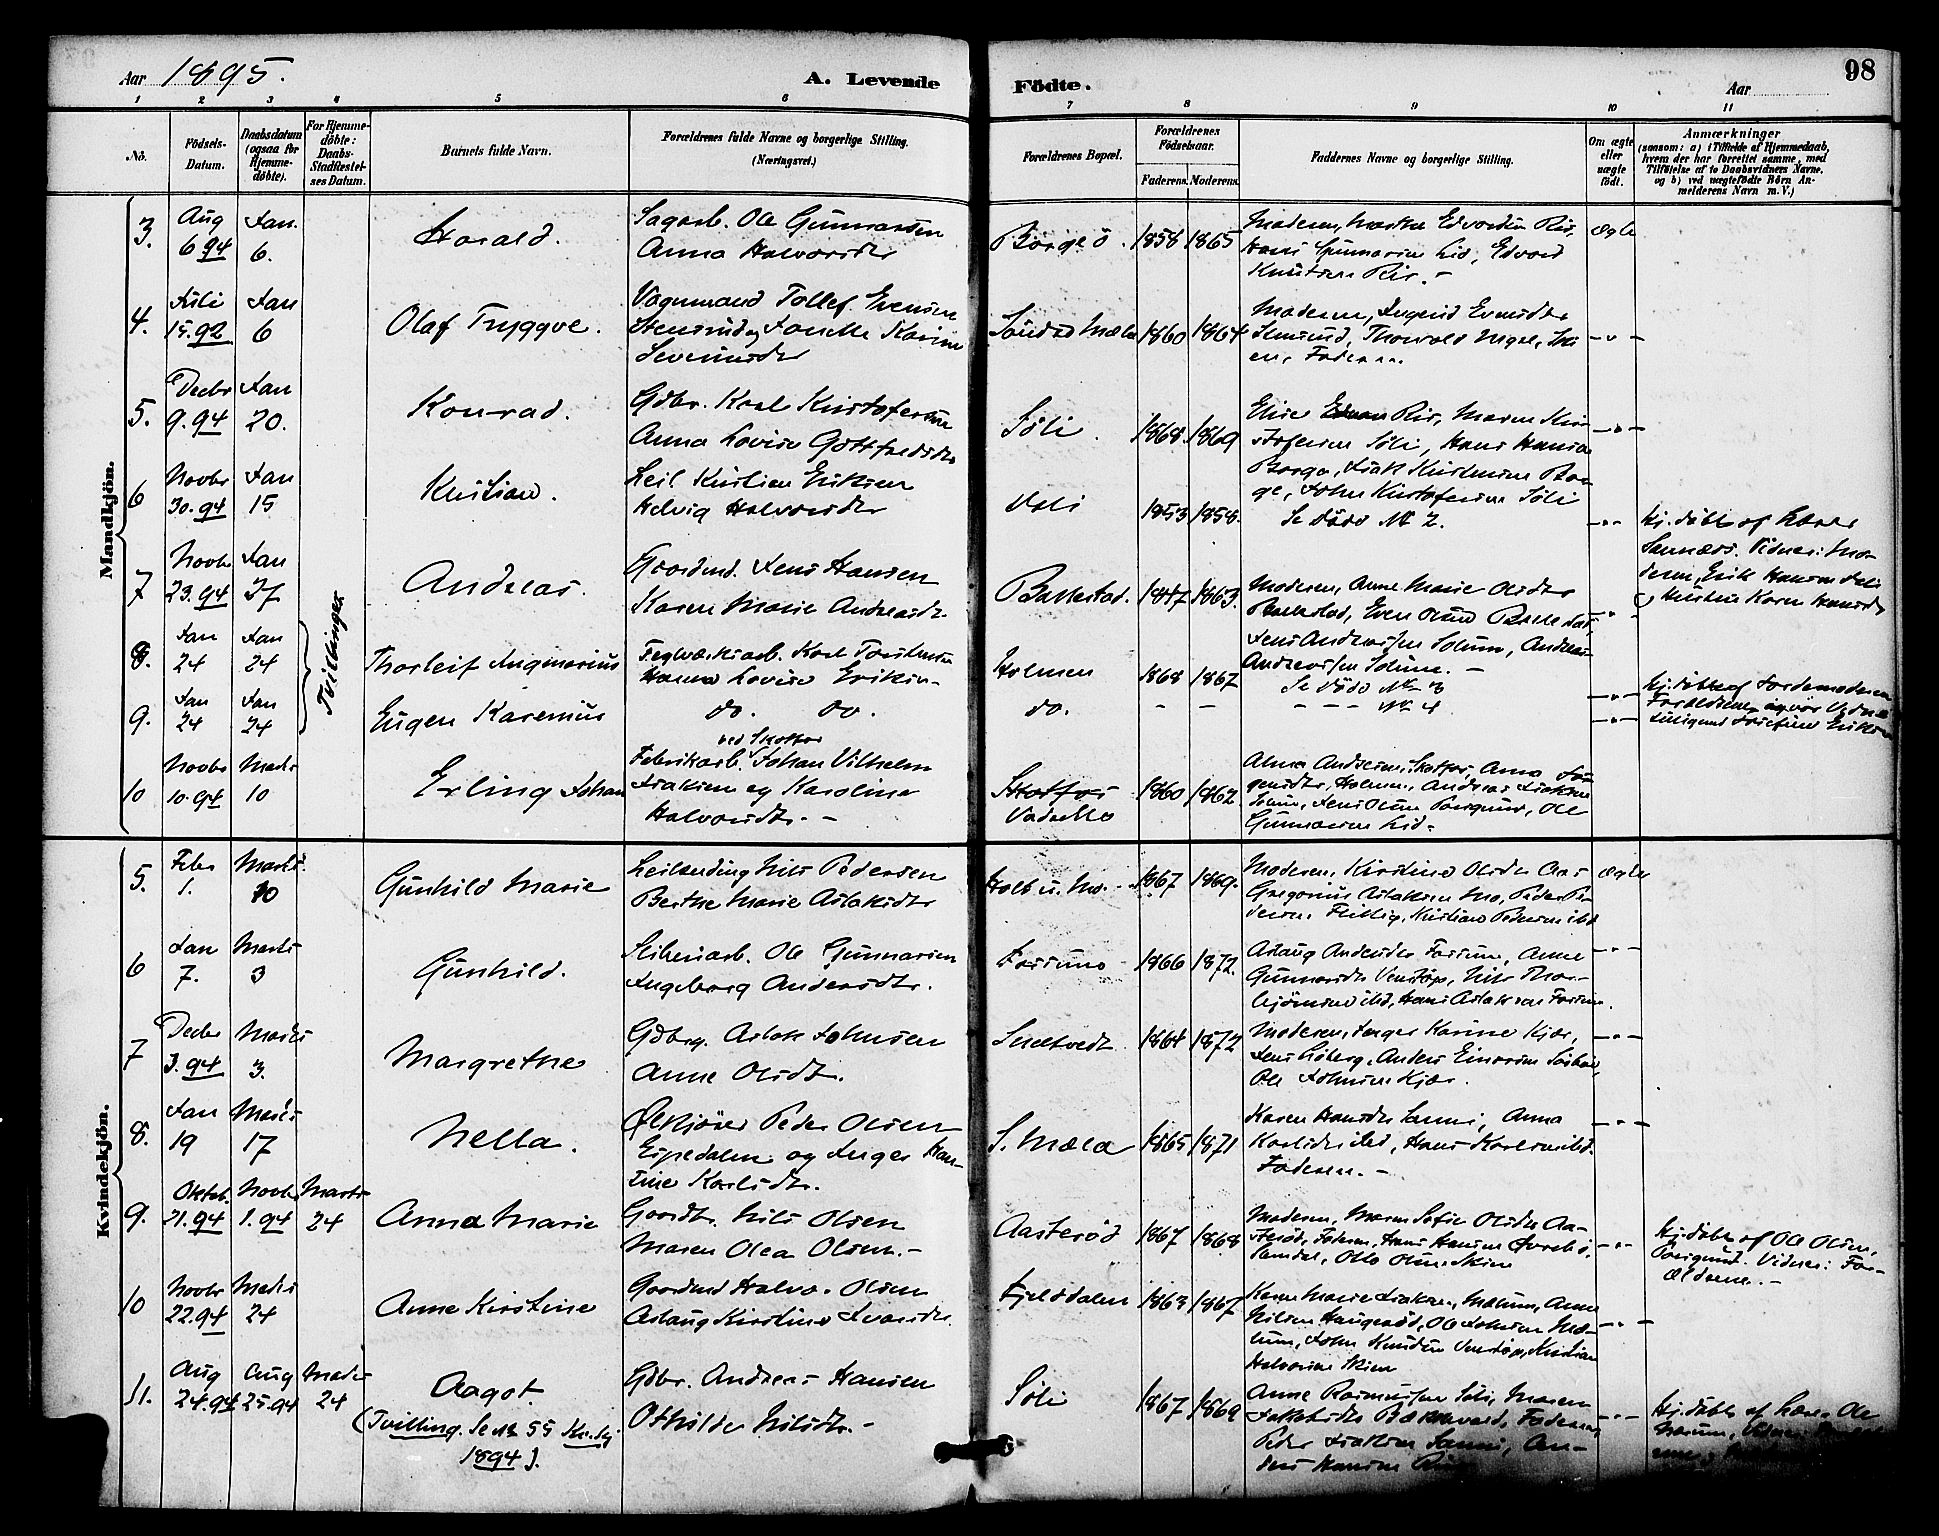 98
Aar 1895.
A. Levende Fødte.
Aar
1 2 3 4 5 6 7 8 9 10 11
No.
Fødsels-Datum.
Daabsdatum (ogsaa for Hjemme-døbte).
For Hjemme-døbte: Daabs-Stadfæstel-ses Datum.
Barnets fulde Navn.
Forældrenes fulde Navne og borgerlige Stilling.
(Næringsvei.)
Forældrenes Bopæl.
Forældrenes Fødselsaar.
Faderens. Moderens.
Faddernes Navne og borgerlige Stilling.
Om ægte eller uægte født.
Anmærkninger
(saasom: a) i Tilfælde af Hjemmedaab,
hvem der har forrettet samme, med
Tilføielse af to Daabsvidners Navne,
og b) ved uægtefødte Børn An-
melderens Navn m. V.)
Mandkjøn.
3. Aug 6 94 Jan. 6. Harald. Sagarb. Ole Gunnarsen
Anna Halvorsdtr Borgeø 1858 1865 Moderen, Marthe Edvardsen Ris,
Hans Gunnarsen Lid, Edvard
Knutsen Ris. - ægte
4. Juli 15. 92 Jan 6 Olaf Tryggve. Vognmand Tollef Evensen
Stensrud og Janette Karine
Severinsdtr Søndre Mæla 1860 1864 Moderen, Ingerid Evensdtr
Stensrud, Thorvald
Faderen. - " -
5. Decbr 9. 94 Jan 20. Konrad. Gdbr. Karl Kristofersen
Anna Lovise Gottfredsdtr Søli. 1868 1869 Elise Ris, Maren Kri-
stofersen Søli, Hans Hansen
Borge, Isak Kristensen Bor-
ge, John Kristofersen Søli - " -
6 Novbr 30. 94 Jan 15 Kristian. Leil Kristian Eriksen
Helvig Halvorsdtr Dali 1853 1858. Se døde No 2. - " - Hj. døbt af Lærer
Sannæs. Vidner: Mo-
deren, Erik Hansen Dali
7 Novbr 23. 94 Jan 27 Andreas. Gaardmd. Jens Hansen
Karen Marie Andreasdtr. Ballestad. 1847 1863. Moderen, Anne Marie Olsdtr
Ballestad, Even Olsen Ballestad,
Jens Andreassen Solum, Andreas
Andreassen Solum. - - " -
Tvillinger
8. Jan 24 Jan 24 Thorleif Ingmarius Teglværksarb. Karl Torstensen
Hanna Lovise Eriksen Holmen 1868 1867 Se døde No 3 - " - Hj. døbt af Jordemoderen
9. Jan 24 Jan 24 Eugen Karenius do. do. do. - - - - - No 4 - " -
10 Novbr 10. 94 Marts 10 Erling Johan ved Skotfos
Fabrikarb. Johan Vilhelm
Isaksen og Karoline
Halvorsdtr. - Skotfos
Vadrette 1860 1862 Alma Andersen, Skotfos, Anna Jør-
gensdtr, Holmen, Andreas Isaksen
Jens Olsen Porsgrund, Ole
Gunnarsen Lid.
Kvindekjøn.
5. Febr 1. Marts 10 Gunhild Marie Leilending Nils Pedersen
Berthe Marie Aslaksdtr Holt u. Mo. 1867 1869. Moderen, Kirstine Olsdtr Aas
Gregorius Aslaksen Mo, Peder Pe-
dersen Flittig, Kristiane Pedersen ibd ægte
6 Jan 7. Marts 3 Gunhild. Sliberiarb. Ole Gunnarsen
Ingeborg Andersdtr. Fossum 1866 1872. Aslaug Andersdtr Fossum, Anne
Gunnarsdtr Venstøp, Nils Thor-
bjørnsen ibd, Hans Aslaksen Fossum. - " -
7 Decbr 3. 94 Marts 3. Margrethe Gdbrg. Aslak Johnsen
Anne Olsdtr. Sneltvedt 1864 1872 Moderen, Inger Karine Kjær,
Jens Liberg, Anders Einarsen
Ole Johnsen Kjær. - " -
8. Jan 19 Marts 17 Nella. Ølkjører Peder Olsen
Espedalen og Inger Kan-
tine Karlsdtr. S. Mæla 1865 1871 Karen Hansdtr Sanni, Anna
Karlsdtr ibd, Hans Karlsen ibd.
Faderen. - - " -
9. Oktob. 21. 94 Novbr 1. 94 Marts 24 Anna Marie Gaardbr. Nils Olsen
Maren Olea Olsen. - Aasterød 1867 1868 Moderen, Maren Sofie Olsdtr Aa-
sterød, Faderen, Hans Hansen
Otto Olsen Skien - " - Hj. døbt af Ole Olsen,
Porsgrund. Vidner: For-
ældrene. -
10 Novbr 22. 94 Marts 24 Anne Kirstine Gaardmd Halvor Olsen
Aslaug Kirstine Ivarsdtr. Fjelddalen 1863 1867 Karen Marie Isaksen, Mælum, Anne
Nilsen Haugerød, Ole Johnsen Mæ-
lum, John Knudsen Venstøp, Kristian
Halvorsen Skien - " -
11. Aug 24. 94 Aug 25. 94 Marts 24 Aagot
(Tvilling. Se No 55 Kv. kj
1894). Gdbr. Andreas Hansen
Othilde Nilsdtr. - Søli 1867 1869 Anne Rasmussen Søli, Maren
Jakobsdtr Bakkevold, Faderen,
Peder Isaksen Sanni, An-
ders Hansen - " - Hj. døbt af Lærer Ole